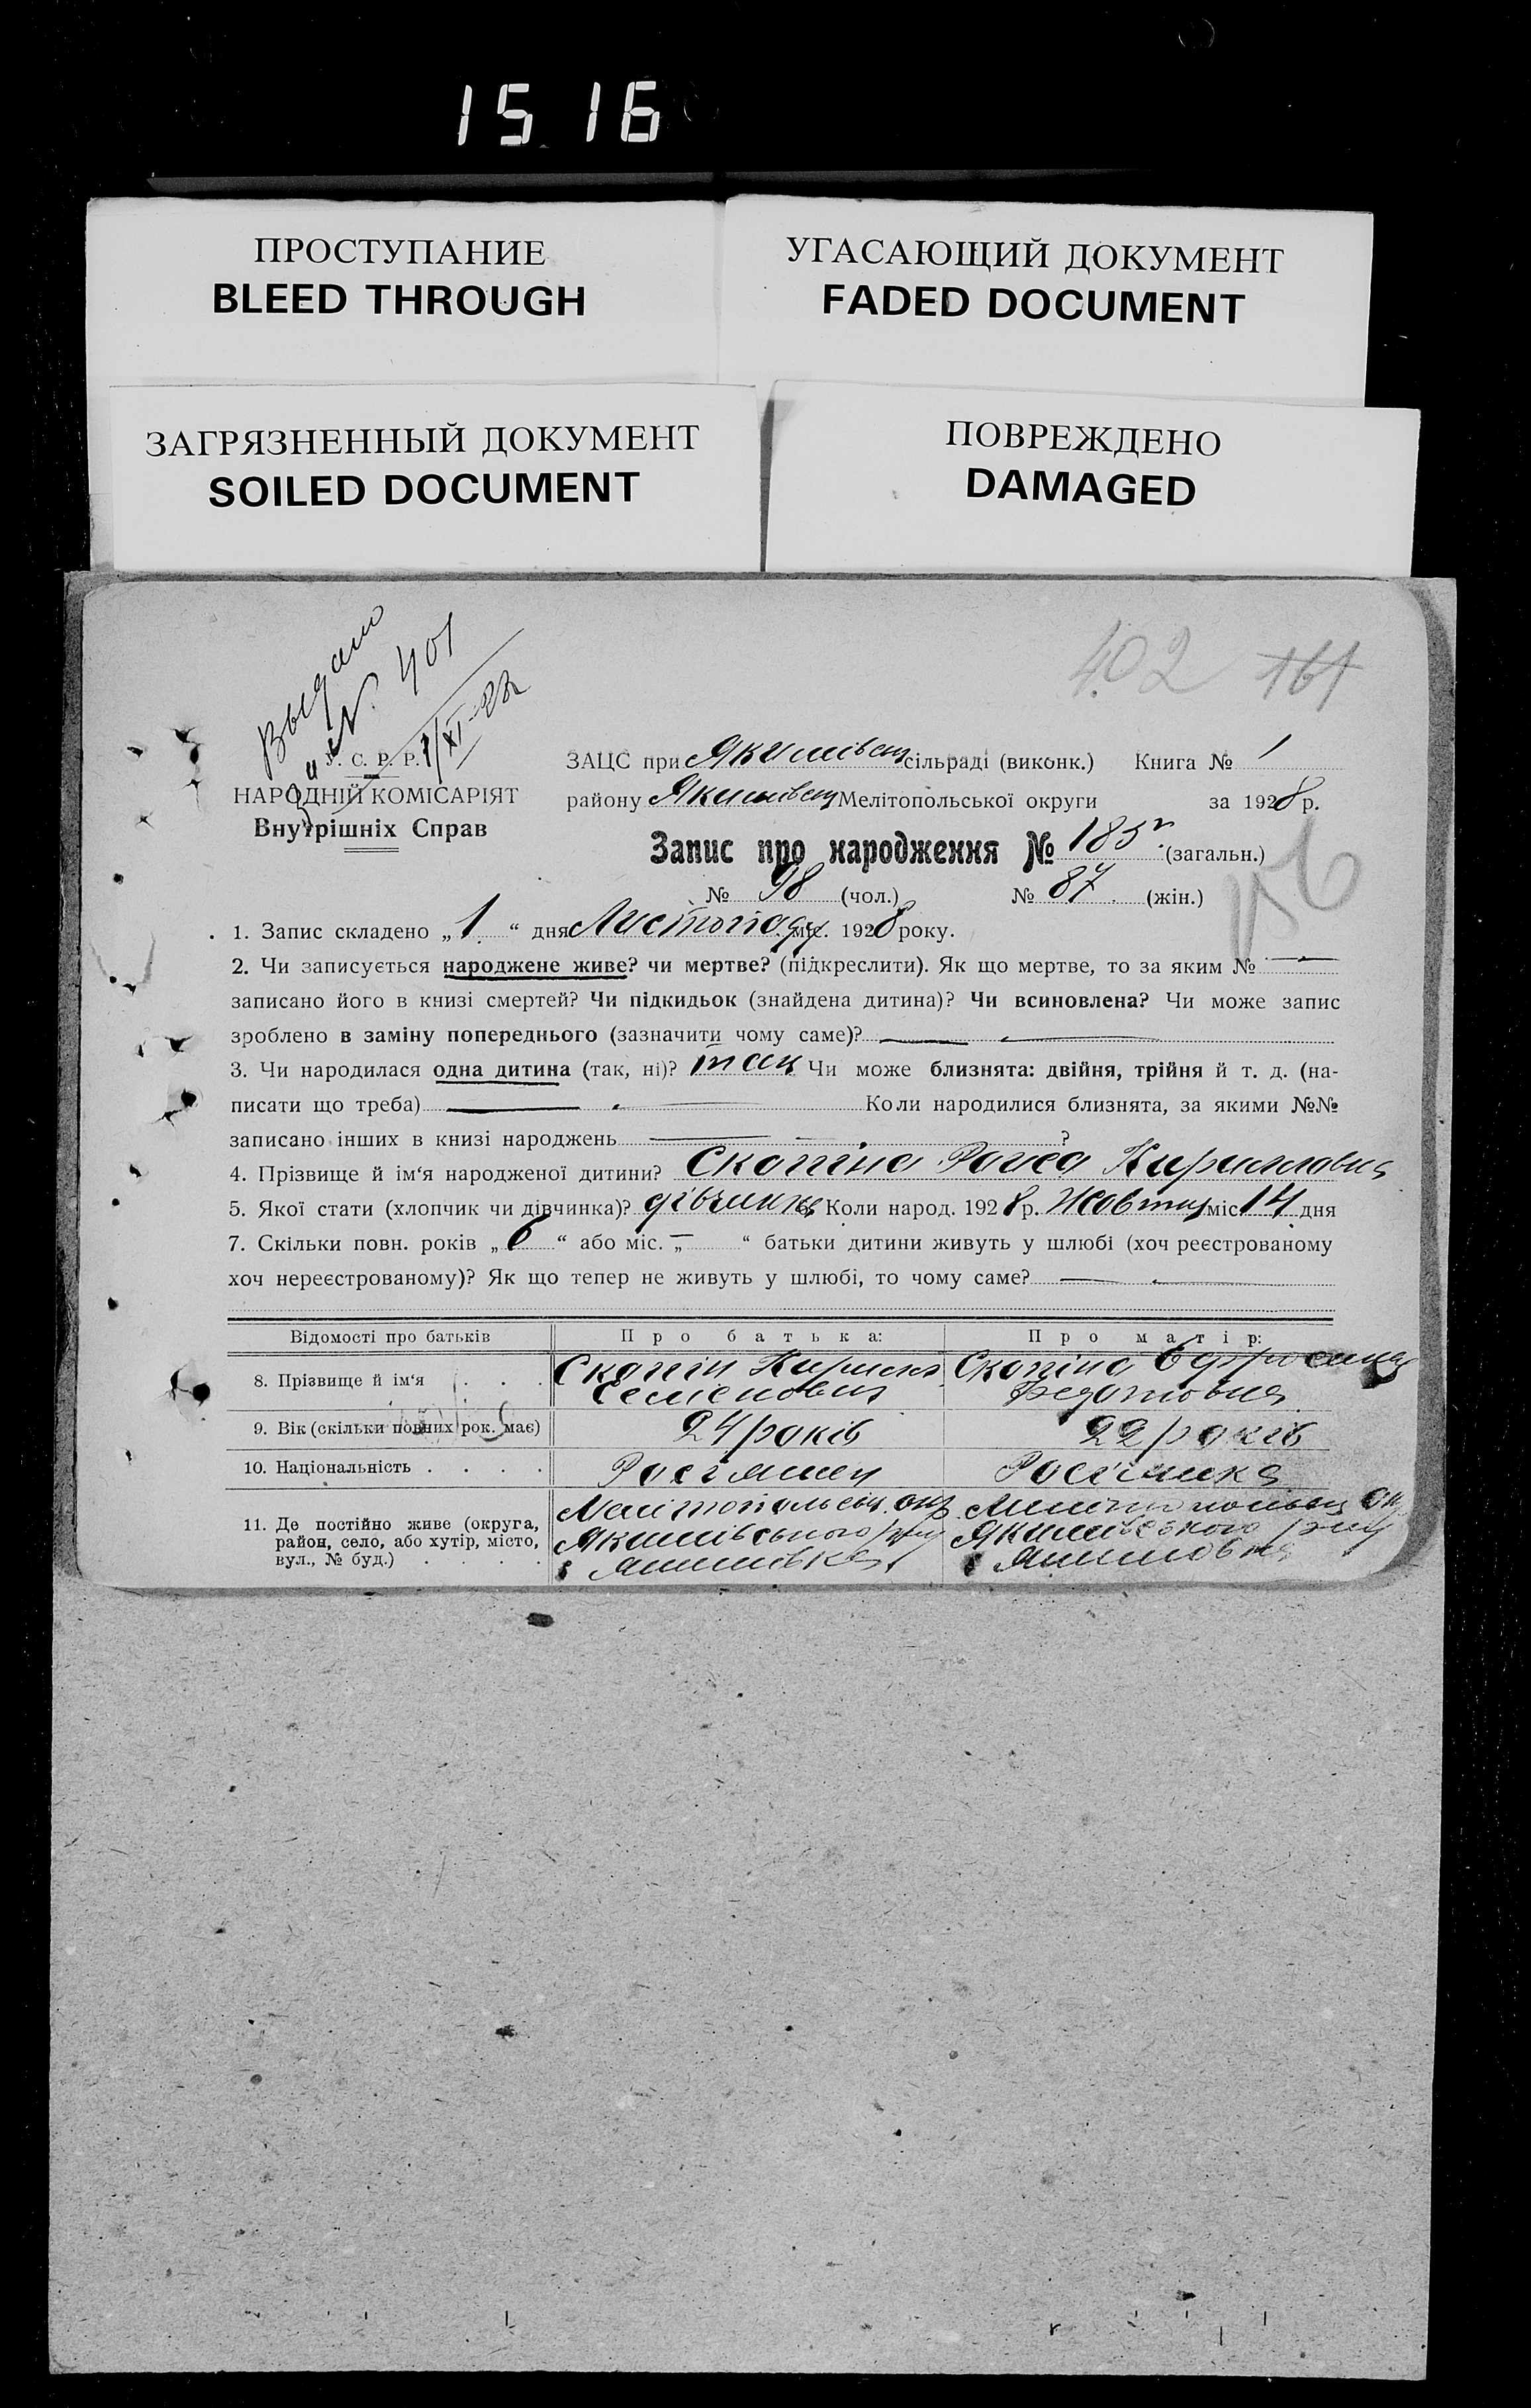 15 16
ПРОСТУПАНИЕ
BLEED THROUGH
УГАСАЮЩИЙ ДОКУМЕНТ
FADED DOCUMENT
ЗАГРЯЗНЕННЫЙ ДОКУМЕНТ
SOILED DOCUMENT
ПОВРЕЖДЕНО
DAMAGED
Выдано
№ 401
402 161
У. С. Р. Р.
НАРОДНІЙ КОМІСАРІЯТ
Внутрішніх Справ
ЗАЦС при Якимівськ сільраді (виконк.) Книга № 1
району Якимівськ Мелітопольської округи за 1928 р.
Запис про народження № 185 (загальн.)
156
№ 98 (чол.) № 87 (жін.)
1. Запис складено „1“ дня Листопаду міс. 1928 року.
2. Чи записується народжене живе? чи мертве? (підкреслити). Як що мертве, то за яким № —
записано його в книзі смертей? Чи підкидьок (знайдена дитина)? Чи всиновлена? Чи може запис
зроблено в заміну попереднього (зазначити чому саме)? —
3. Чи народилася одна дитина (так, ні)? так Чи може близнята: двійня, трійня й т. д. (на-
писати що треба) — Коли народилися близнята, за якими №№
записано інших в книзі народжень — ?
4. Прізвище й ім‘я народженої дитини? Скопіна Раиса Кирилловна
5. Якої стати (хлопчик чи дівчинка)? дівчинка 6. Коли народ. 1928 р. Жовтня міс 14 дня
7. Скільки повн. років „6“ або міс. „—“ батьки дитини живуть у шлюбі (хоч реєстрованому
хоч нереєстрованому)? Як що тепер не живуть у шлюбі, то чому саме? —
Відомості про батьків Про батька: Про матір:
8. Прізвище й ім‘я . . . Скопін Кирило Скопіна Ефросинія
Семенович Федотовна
9. Вік (скільки повних рок. має) 24 років 22 років
10. Національність . . . . Росіянин Росіянка
11. Де постійно живе (округа, район, село, або хутір, місто, вул., № буд.) . . . .
Мелітопольськ. окр. Мелітопольськ ок
Якимівського р-ну Якимівського р-ну
Якимівка Якимовка